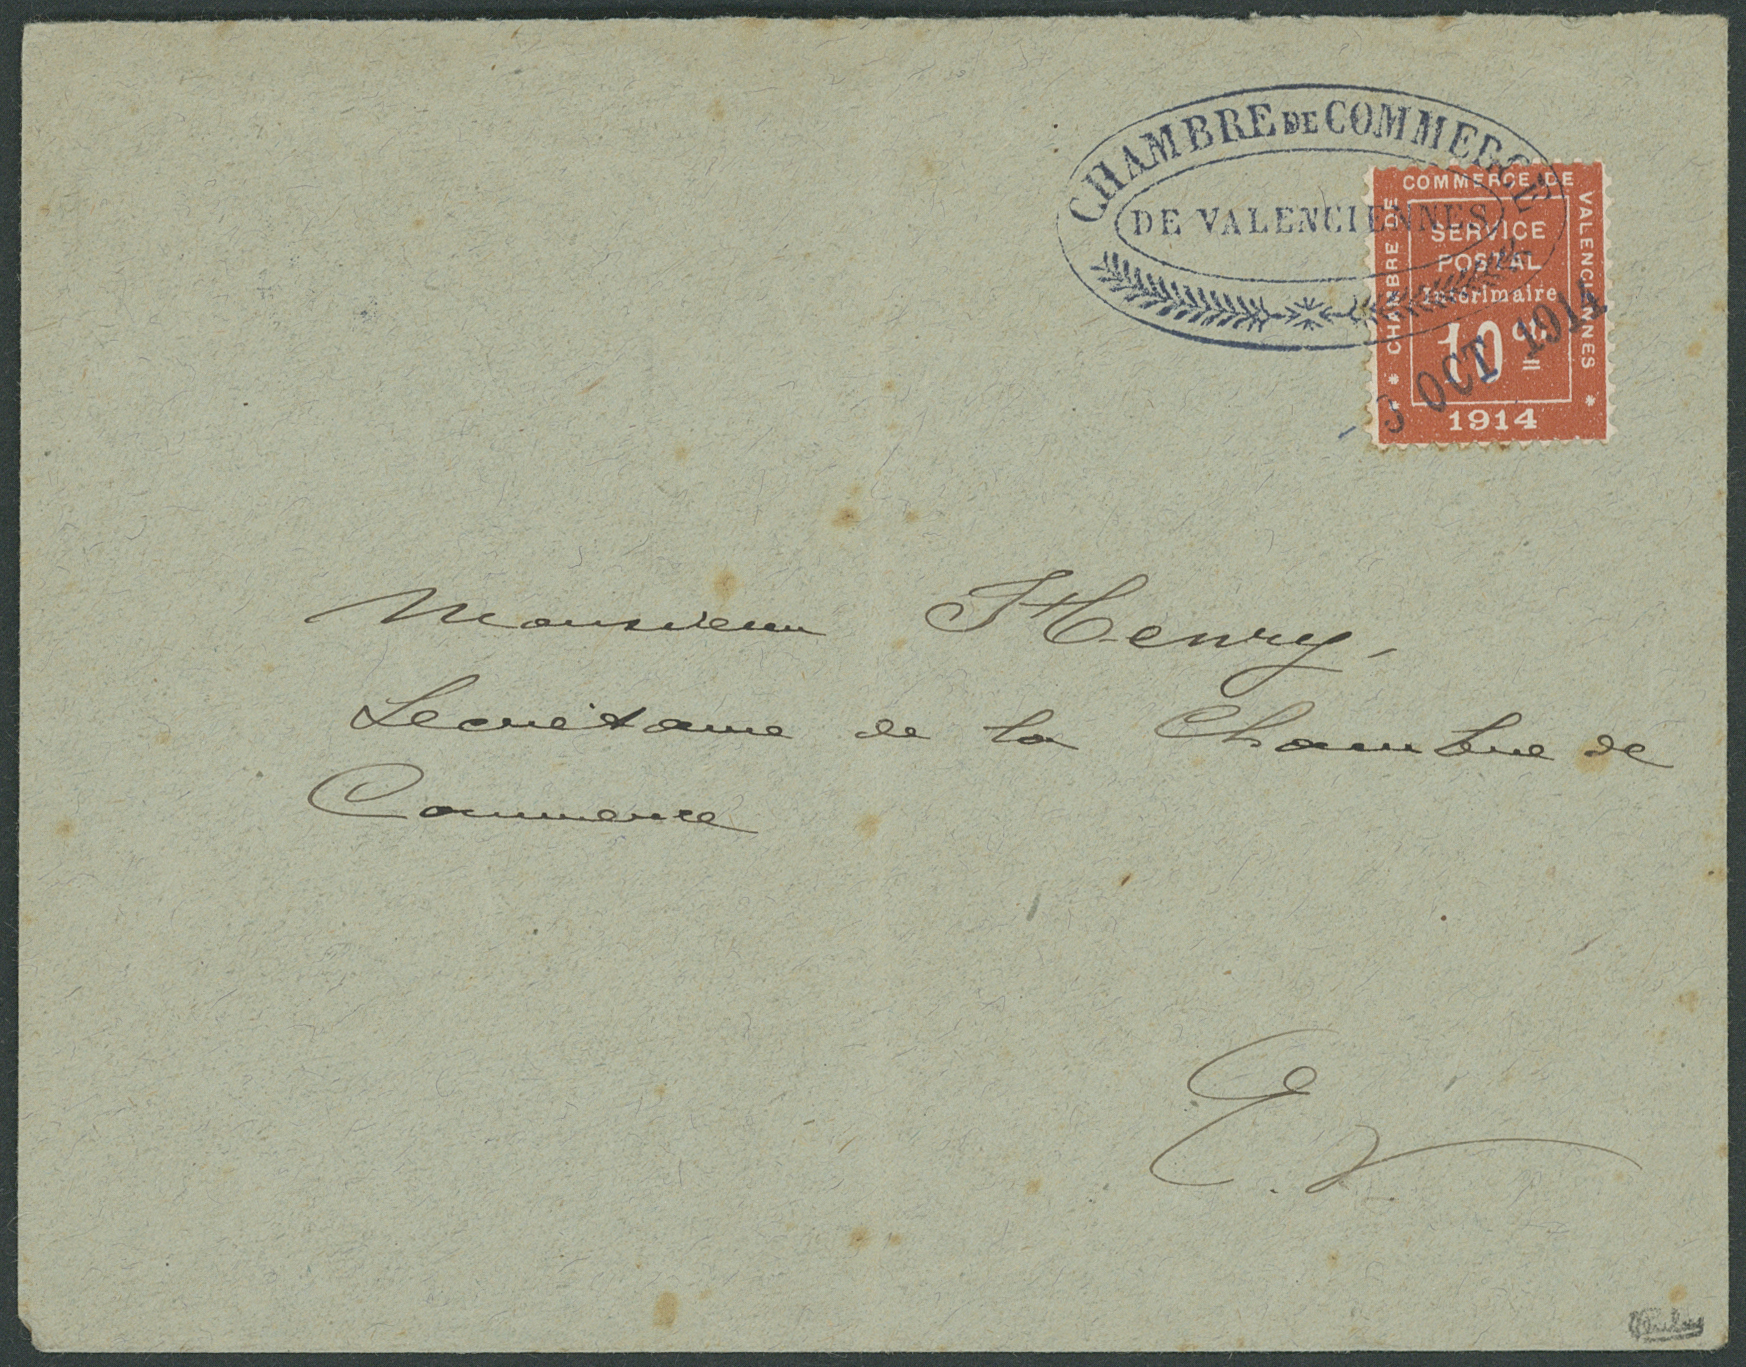 CHAMBRE DE COMMERCE
DE VALENCIENNES
CHAMBRE DE
COMMERCE DE
VALENCIENNES
SERVICE
POSTAL
Intérimaire
10 c.
1914
3 OCT 1914
Monsieur Henry,
Secrétaire de la Chambre de
Commerce
E. V.